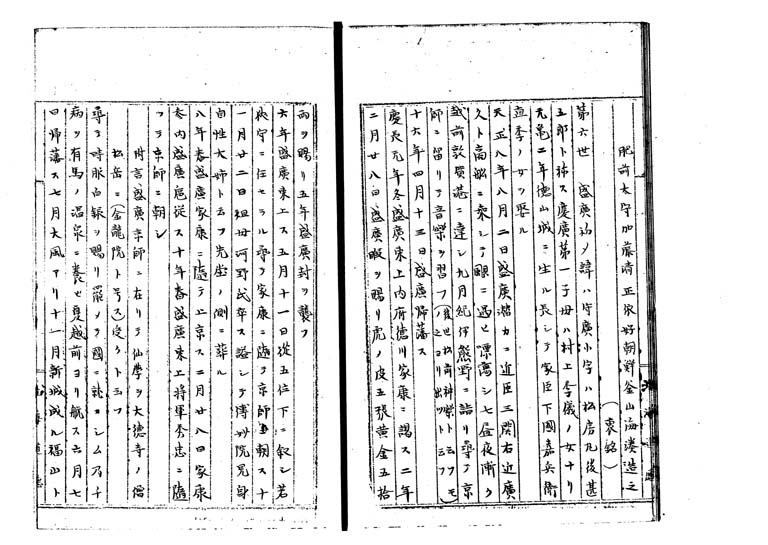 肥前太守加藤清正依好朝鮮釜山海湊造之
(裏銘)
第六世 盛廣初ノ諱ハ守廣小字ハ松房丸後甚
五郎ト称ス慶廣第一子母ハ村上季儀ノ女ナリ
元亀二年徳山城ニ生ル長シテ家臣下國嘉兵衛
直季ノ女ヲ娶ル
天正八年八月二日盛廣潜カニ近臣三関右近廣
久ト商船ニ乗シテ颶ニ遇ヒ漂蕩シ七昼夜漸ク
越前敦賀港ニ達シ九月紀伊熊野ニ詣リ尋テ京
師ニ留リテ音樂ヲ習フ(後世松前神樂ト云フモノ之ヨリ出ツト云フ)
十六年四月十三日盛廣帰藩ス
慶長元年冬盛廣東上内府徳川家康ニ謁ス二年
二月廿八日盛廣暇ヲ賜リ虎ノ皮五張黄金五拾
両ヲ賜リ五年盛廣封ヲ襲フ
六年盛廣東上ス五月十一日従五位下ニ叙シ若
狭守ニ任セラル尋テ家康ニ随テ京師ニ朝ス十
一月廿二日祖母河野氏卒ス謚シテ傅妙院晃身
自性大姉ト云フ先塋ノ側ニ葬ル
八年春盛廣家康ニ随テ上京ス二月廿八日家康
参内盛廣扈従ス十年春盛廣東上将軍秀忠ニ随
フテ京師ニ朝シ
附言盛廣京師ニ在リテ仙學ヲ大徳寺ノ僧
松岳ニ(金龍院ト号ス)受クト云フ
尋テ時服白銀ヲ賜リ罷メテ國ニ就コシム乃チ
病ヲ有馬ノ温泉ニ養ヒ更越前ヨリ航ス六月七
日帰藩ス七月大風アリ十一月新城成ル福山ト